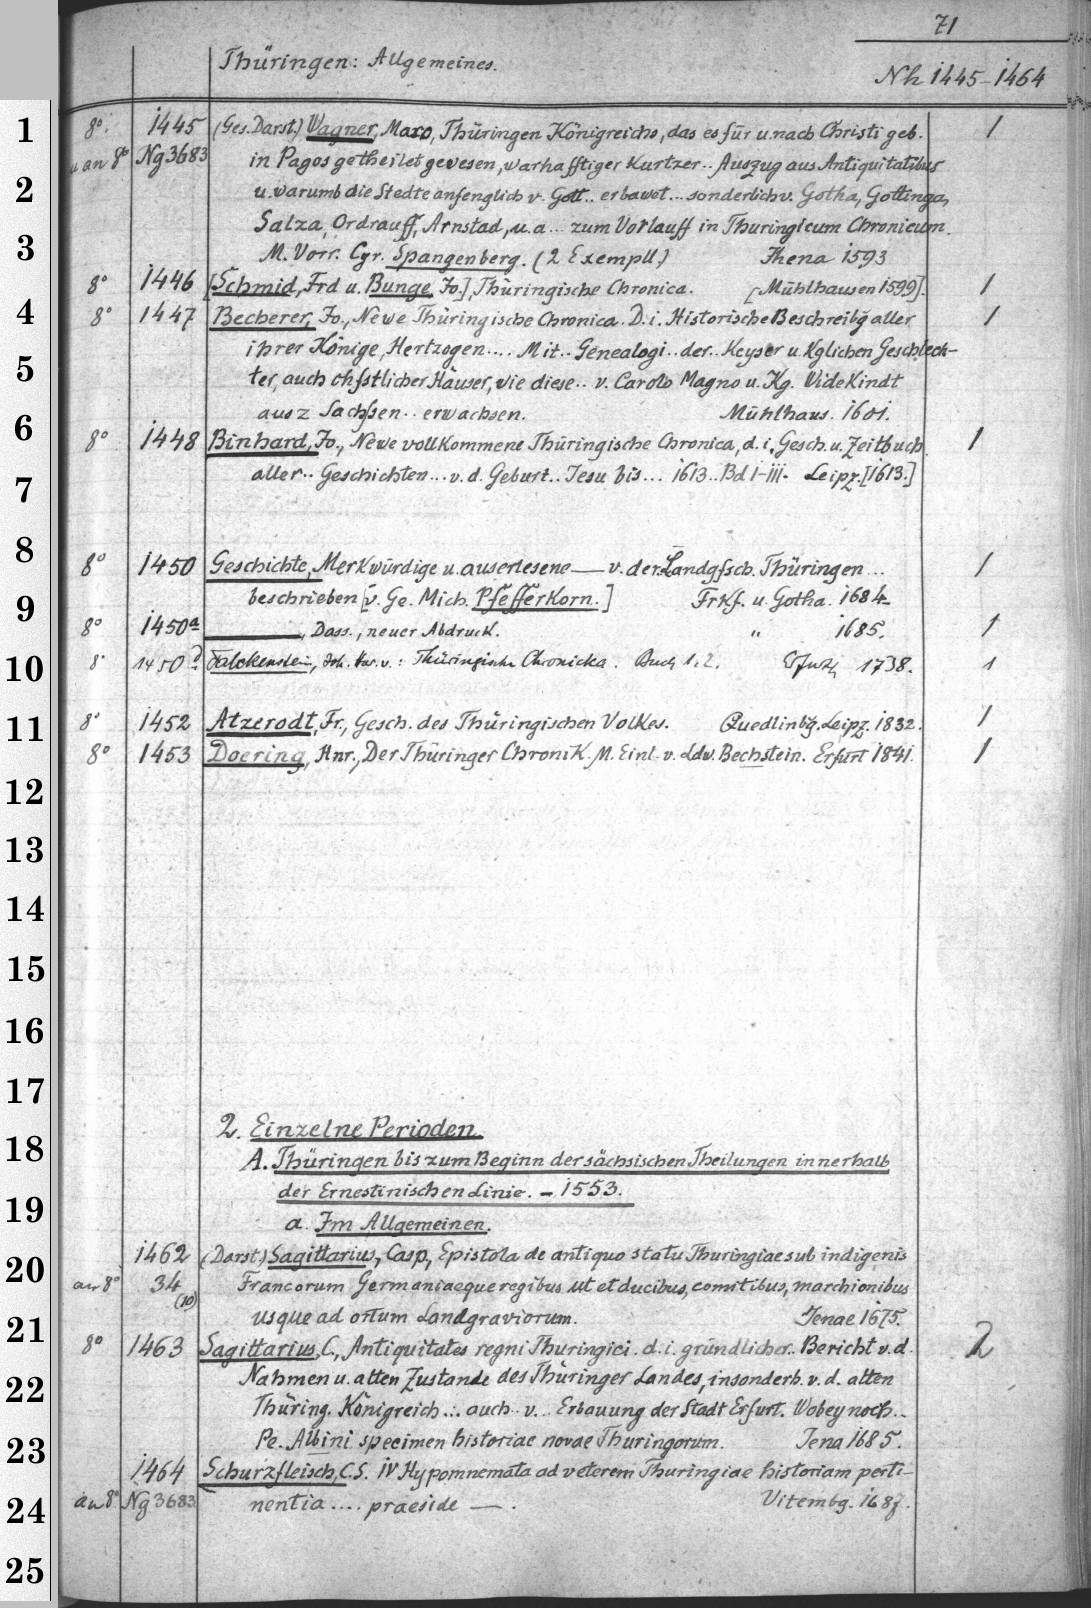 71
Thüringen: Allgemeines.
Nh 1445-1464
1
8°. 1445 (Ges. Darst.) Wagner, Marx, Thüringen Königreichs, das es für u. nach Christi geb. 1
u an 8° Ng 3683 in Pagos getheilet gewesen, warhafftiger Kurtzer.. Auszug aus Antiquitatibus
2
u. warumb die Stedte anfenglich v. Gott.. erbawet... sonderlich v. Gotha, Gottinga,
Salza, Ordrauff, Arnstad, u. a... zum Vorlauff in Thuringicum Chronicum.
3
M. Vorr. Cyr. Spangenberg. (2 Exempll) Jhena 1593
8° 1446 [Schmid, Frd u. Bunge, Jo.], Thüringische Chronica. [Mühlhausen 1599]. 1
4
8° 1447 Becherer, Jo., Newe Thüringische Chronica. D. i. Historische Beschreibg aller 1
ihrer Könige, Hertzogen.... Mit.. Genealogi.. der.. Keyser u. Kglichen Geschlech-
5
ter, auch chfstlicher Häuser, wie diese.. v. Carolo Magno u. Kg. Widekindt
ausz Sachsen.. erwachsen. Mühlhaus. 1601.
6
8° 1448 Binhard, Jo., Newe vollkommene Thüringische Chronica, d. i. Gesch. u. Zeitbuch 1
aller.. Geschichten... v. d. Geburt.. Jesu bis... 1613.. Bd I-III. Leipz. [1613.]
7
8
8° 1450 Geschichte, Merkwürdige u. auserlesene — v. der Landgfsch. Thüringen... 1
9
beschrieben [v. Ge. Mich. Pfefferkorn.] Frkf. u. Gotha. 1684
8° 1450a ———, Dass., neuer Abdruck. " 1685. 1
10
8° 1450 Falckenstein, Joh. v.: Thüringische Chronicka. Buch 1. 2. Erfurt 1738. 1
11
8° 1452 Atzerodt, Fr., Gesch. des Thüringischen Volkes. Quedlinbg. Leipz. 1832. 1
8° 1453 Doering, Hnr., Der Thüringer Chronik. M. Einl. v. Ldw. Bechstein. Erfurt 1841. 1
12
13
14
15
16
17
2. Einzelne Perioden
18
A. Thüringen bis zum Beginn der sächsischen Theilungen innerhalb
der Ernestinischen Linie. - 1553.
19
a. Im Allgemeinen.
1462 (Darst.) Sagittarius, Casp., Epistola de antiquo statu Thuringiae sub indigenis
20
an 8° 34 (10) Francorum Germaniaeque regibus ut et ducibus, comitibus, marchionibus
usque ad ortum Landgraviorum. Jenae 1675.
21
8° 1463 Sagittarius, C., Antiquitates regni Thuringici. d. i. gründlicher.. Bericht v. d. 2
Nahmen u. alten Zustande des Thüringer Landes, insonderh. v. d. alten
22
Thüring. Königreich... auch.. v... Erbauung der Stadt Erfurt. Wobey noch..
Pe. Albini specimen historiae novae Thuringorum. Jena 1685.
23
1464 Schurzfleisch, C. S. IV Hypomnemata ad veterem Thuringiae historiam perti-
24
an 8° Ng 3683 nentia.... praeside —. Vitembg. 1687.
25